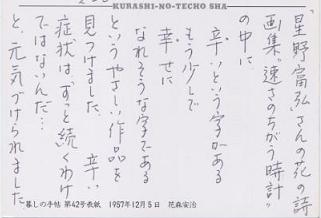 KURASHI-NO-TECHO SHA
星野富弘さんの花の詩
画集"速さのちがう時計"
の中に
辛いという字がある
もう少しで
幸せに
なれそうな字である
というやさしい作品を
見つけました。辛い
症状はずっと続くわけ
ではないんだ…
と、元気づけられました
暮しの手帖 第42号表紙 1957年12月5日 花森安治